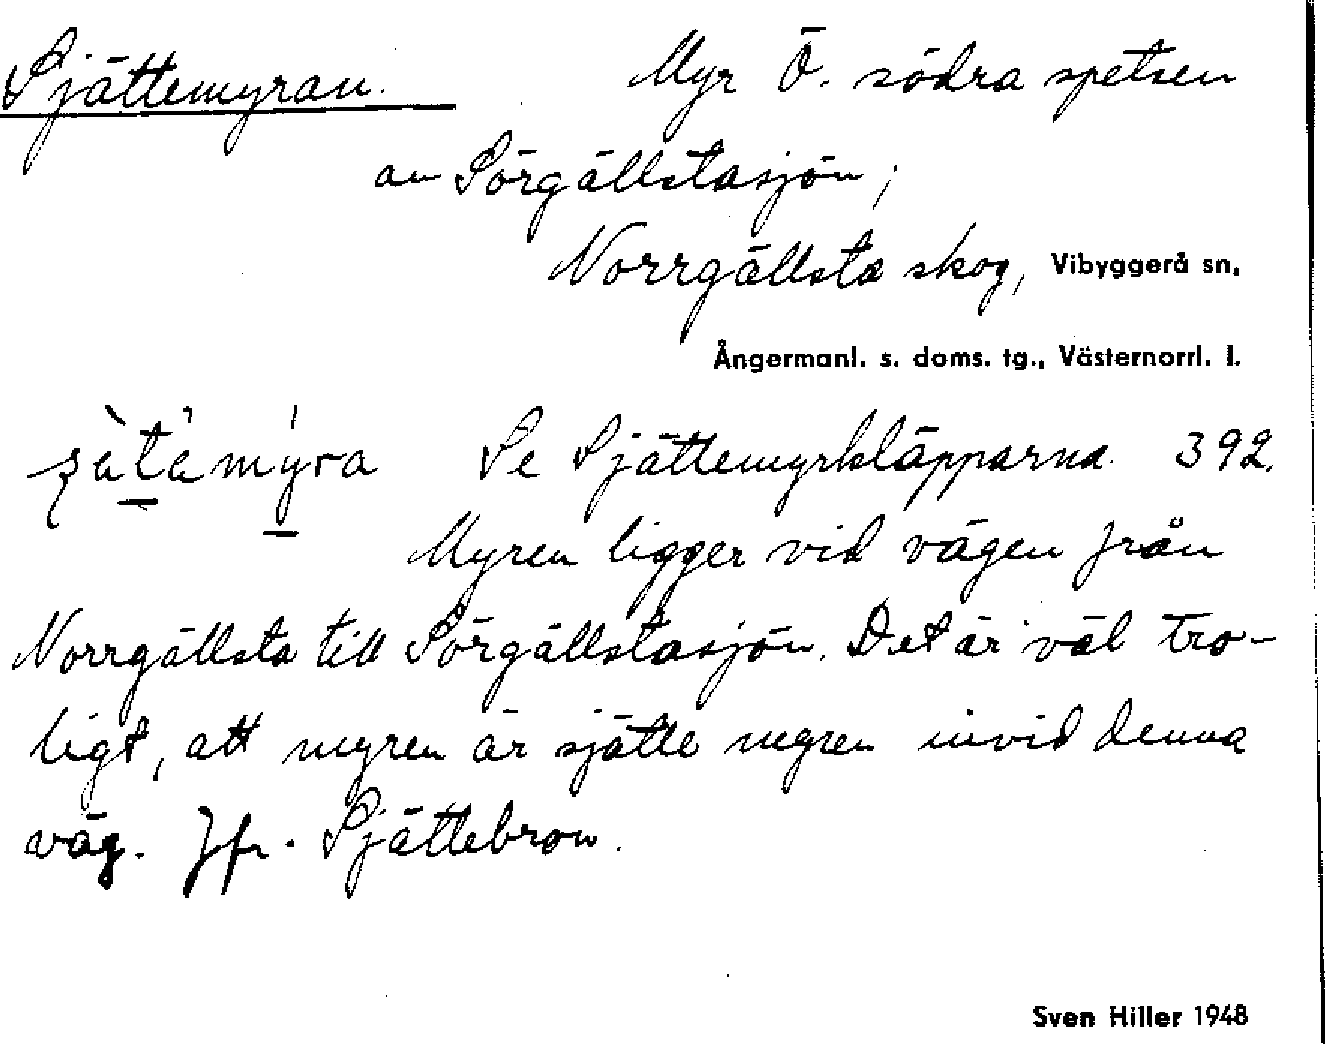 Sjättemyran. Myr Ö. södra spetsen
av Sörgällstasjön;
Norrgällsta skog, Vibyggerå sn,
Ångermanl. s. doms. tg., Västernorrl. l.
Se Sjättemyrkläpparna. 392.
Myren ligger vid vägen från
Norrgällsta till Sörgällstasjön. Det är väl tro-
ligt, att myren är sjätte myren invid denna
väg. Jfr. Sjättebron.
Sven Hiller 1948